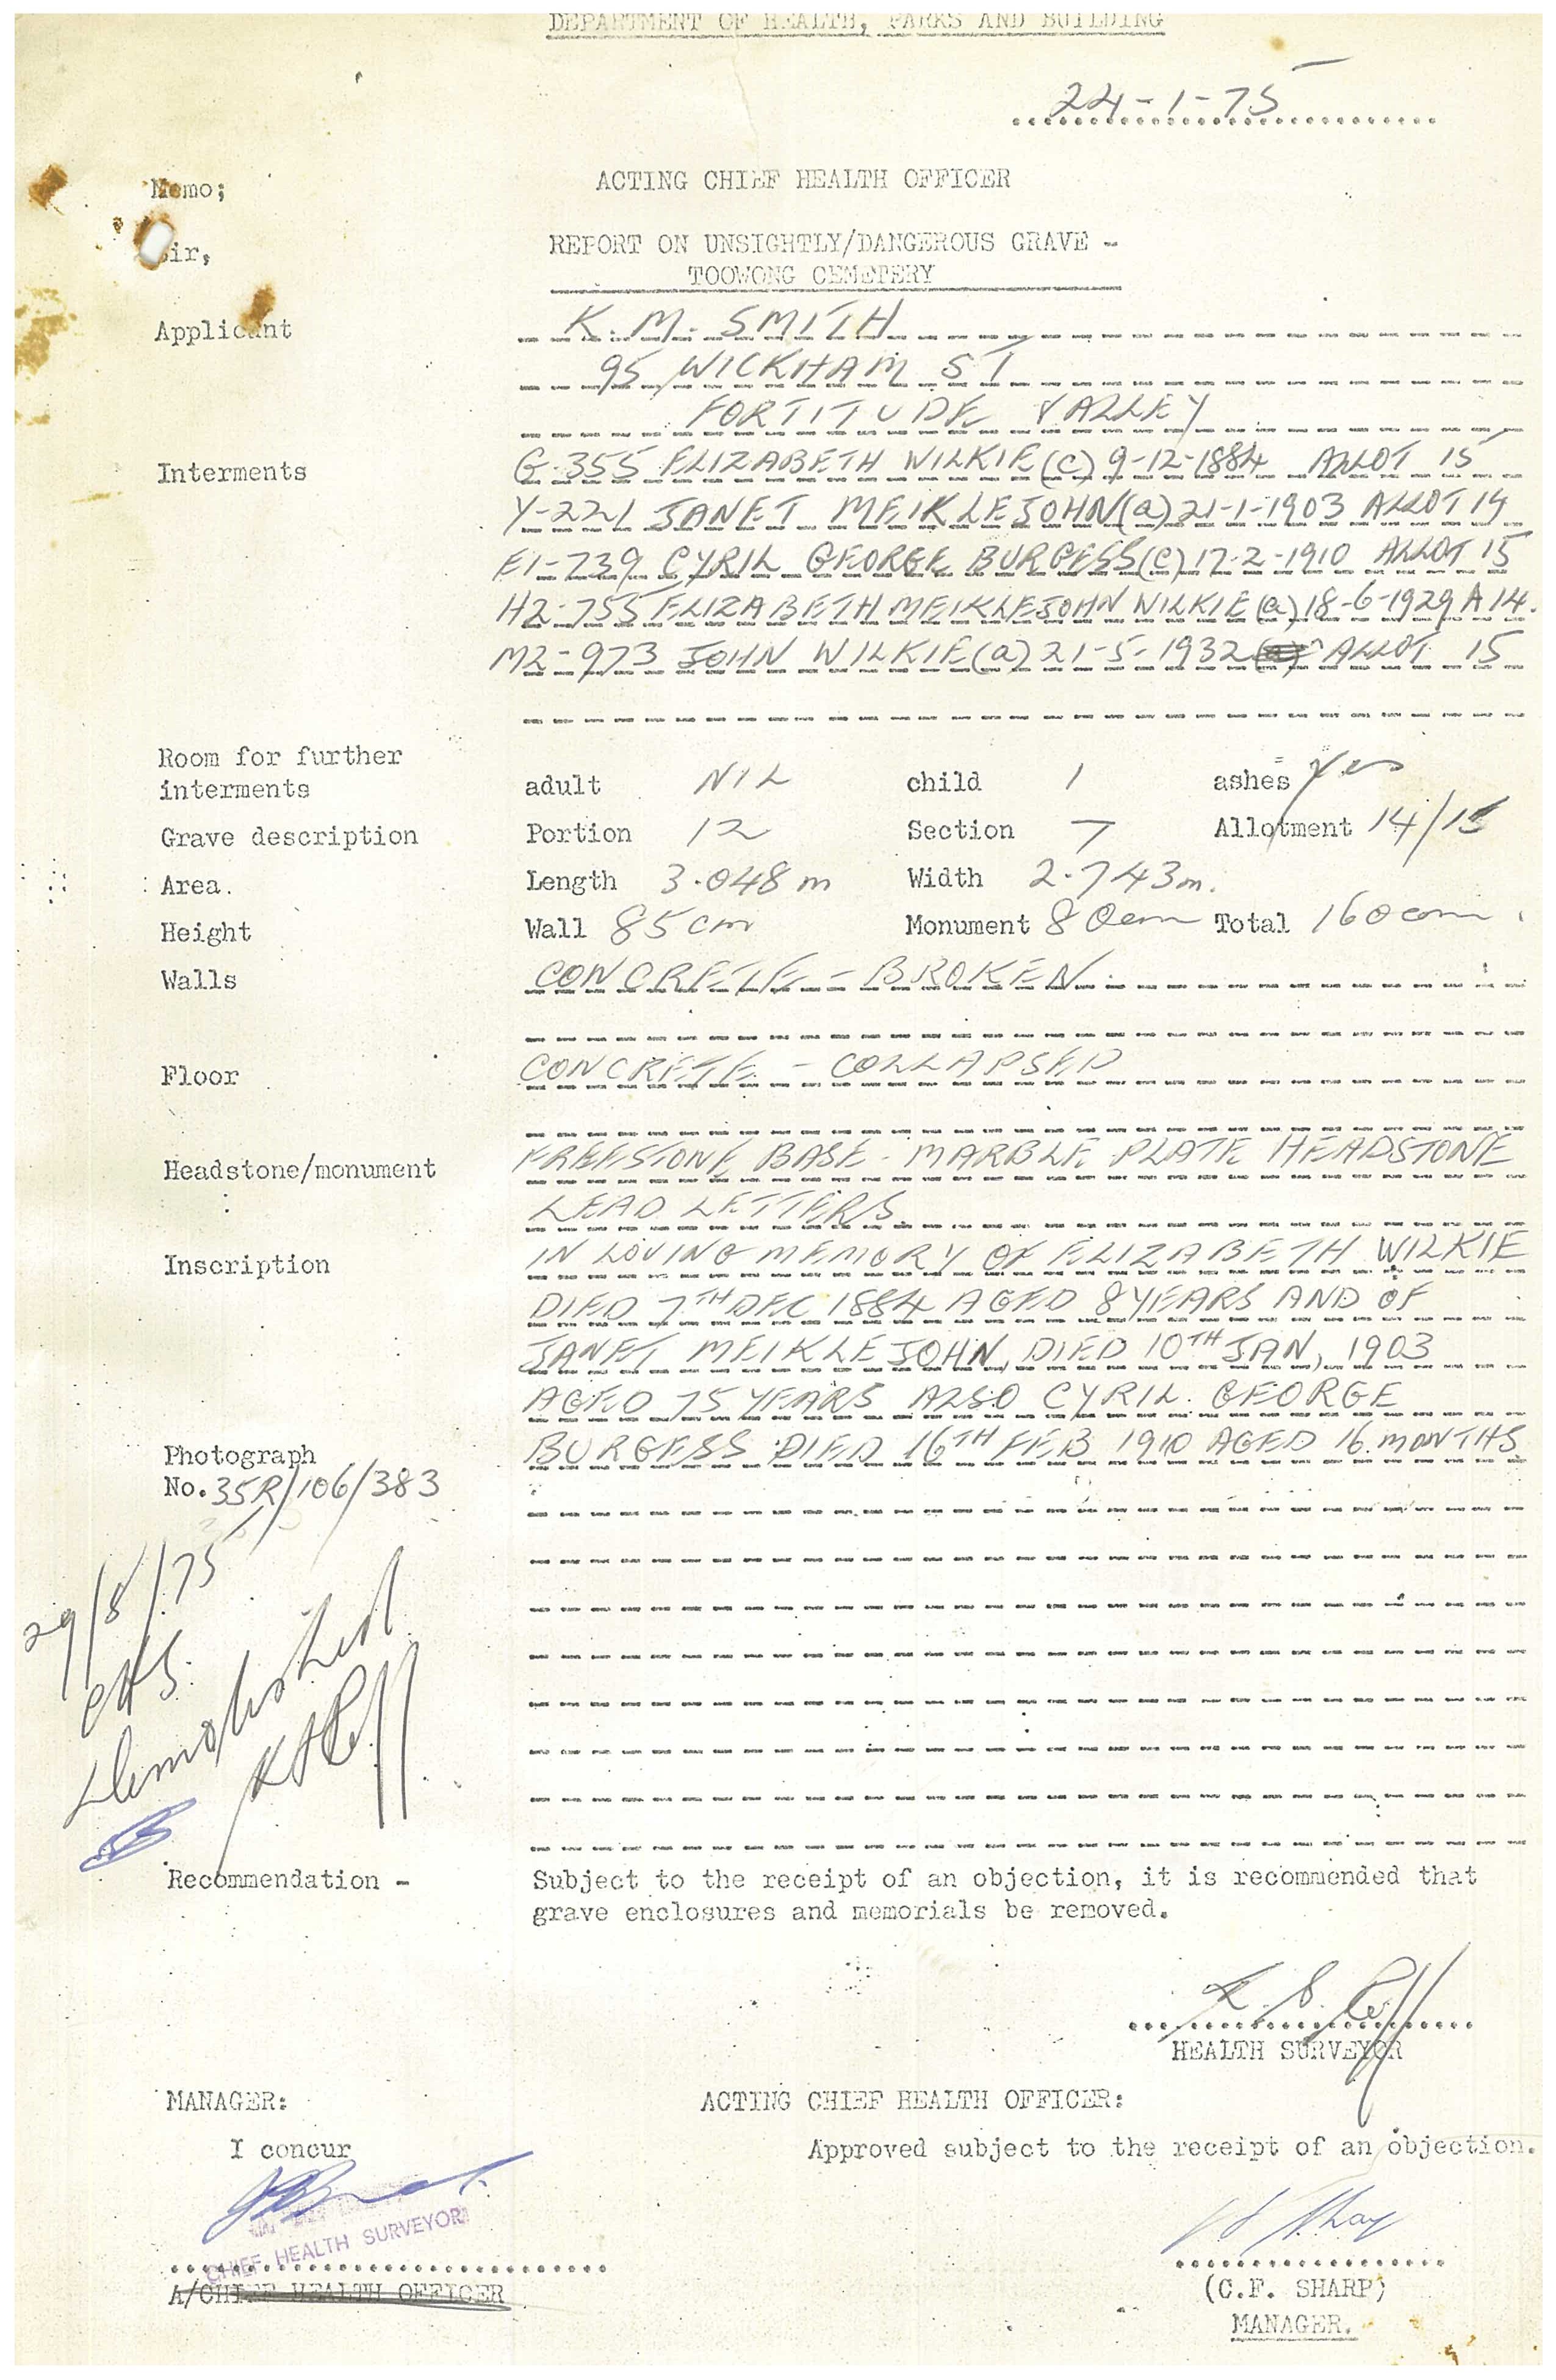 DEPARTMENT OF HEALTH, PARKS AND BUILDING
24-1-75
Memo; ACTING CHIEF HEALTH OFFICER
Sir, REPORT ON UNSIGHTLY/DANGEROUS GRAVE -
TOOWONG CEMETERY
Applicant K. M. SMITH
95 WICKHAM ST
FORTITUDE VALLEY
Interments G-355 ELIZABETH WILKIE (C) 9-12-1884 ALLOT 15
Y-221 JANET MEIKLEJOHN (a) 21-1-1903 ALLOT 14
E1-739 CYRIL GEORGE BURGESS (C) 17-2-1910 ALLOT 15
H2-755 ELIZABETH MEIKLEJOHN WILKIE (a) 18-6-1929 A 14.
M2-973 JOHN WILKIE (a) 21-5-1932 ALLOT 15
Room for further
interments adult NIL child 1 ashes Yes
Grave description Portion 12 Section 7 Allotment 14/15
Area. Length 3.048 m Width 2.743 m.
Height Wall 85 cm Monument 80 cm Total 160 cm.
Walls CONCRETE - BROKEN.
Floor CONCRETE - COLLAPSED
Headstone/monument FREESTONE BASE - MARBLE PLATE HEADSTONE
LEAD LETTERS
Inscription IN LOVING MEMORY OF ELIZABETH WILKIE
DIED 7TH DEC 1884 AGED 8 YEARS AND OF
JANET MEIKLEJOHN, DIED 10TH JAN, 1903
AGED 75 YEARS ALSO CYRIL GEORGE
BURGESS DIED 16TH FEB 1910 AGED 16 MONTHS
Photograph
No. 35R/106/383
29/8/75
CHS.
Demolished
Recommendation - Subject to the receipt of an objection, it is recommended that
grave enclosures and memorials be removed.
HEALTH SURVEYOR
MANAGER: ACTING CHIEF HEALTH OFFICER:
I concur Approved subject to the receipt of an objection.
CHIEF HEALTH SURVEYOR
A/CHIEF HEALTH OFFICER
(C.F. SHARP)
MANAGER.